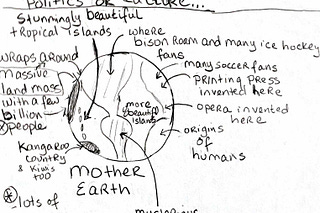 Politics or Culture...
stunningly beautiful
tropical islands
where
bison roam and many ice hockey
fans
many soccer fans
printing press
invented here
opera invented
here
origins
of
humans
wraps around
massive
land mass
with a few
billion
people
more
beautiful
islands
Kangaroo
country
& Kiwis
too
Mother
Earth
lots of